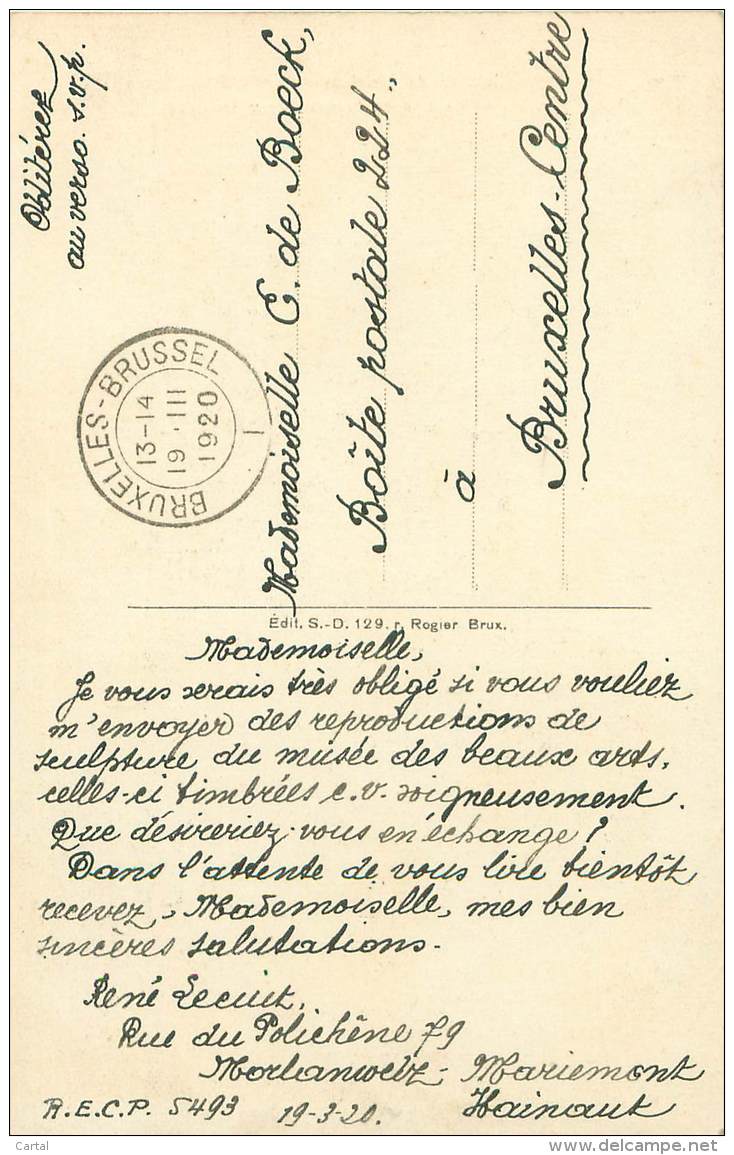 Oblitérez
au verso. s.v.p.
BRUXELLES-BRUSSEL
13-14
19 · III
1920
1
Mademoiselle E. de Boeck,
Boîte postale 224,
à
Bruxelles-Centre
Édit. S.-D. 129. r. Rogier Brux.
Mademoiselle,
Je vous serais très obligé si vous vouliez
m'envoyer des reproductions de
sculpture du musée des beaux arts,
celles-ci timbrées c.v. soigneusement.
Que désireriez-vous en échange?
Dans l'attente de vous lire bientôt
recevez, Mademoiselle, mes bien
sincères salutations.
René Lecuit,
Rue du Polichêne 79
Morlanwelz-Mariemont
R.E.C.P. 5493 19-3-20. Hainaut
Cartal
www.delcampe.net